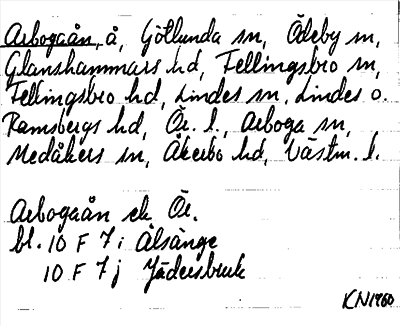 Arbogaån, å, Götlunda sn, Ödeby sn,
Glanshammars hd, Fellingsbro sn,
Fellingsbro hd, Lindes sn, Lindes o.
Ramsbergs hd, Ör. l., Arboga sn,
Medåkers sn, Åkerbo hd, Västm. l.
Arbogaån ek Ör.
bl. 10 F 7 i Älsänge
10 F 7 j Jädersbruk
KN 1980